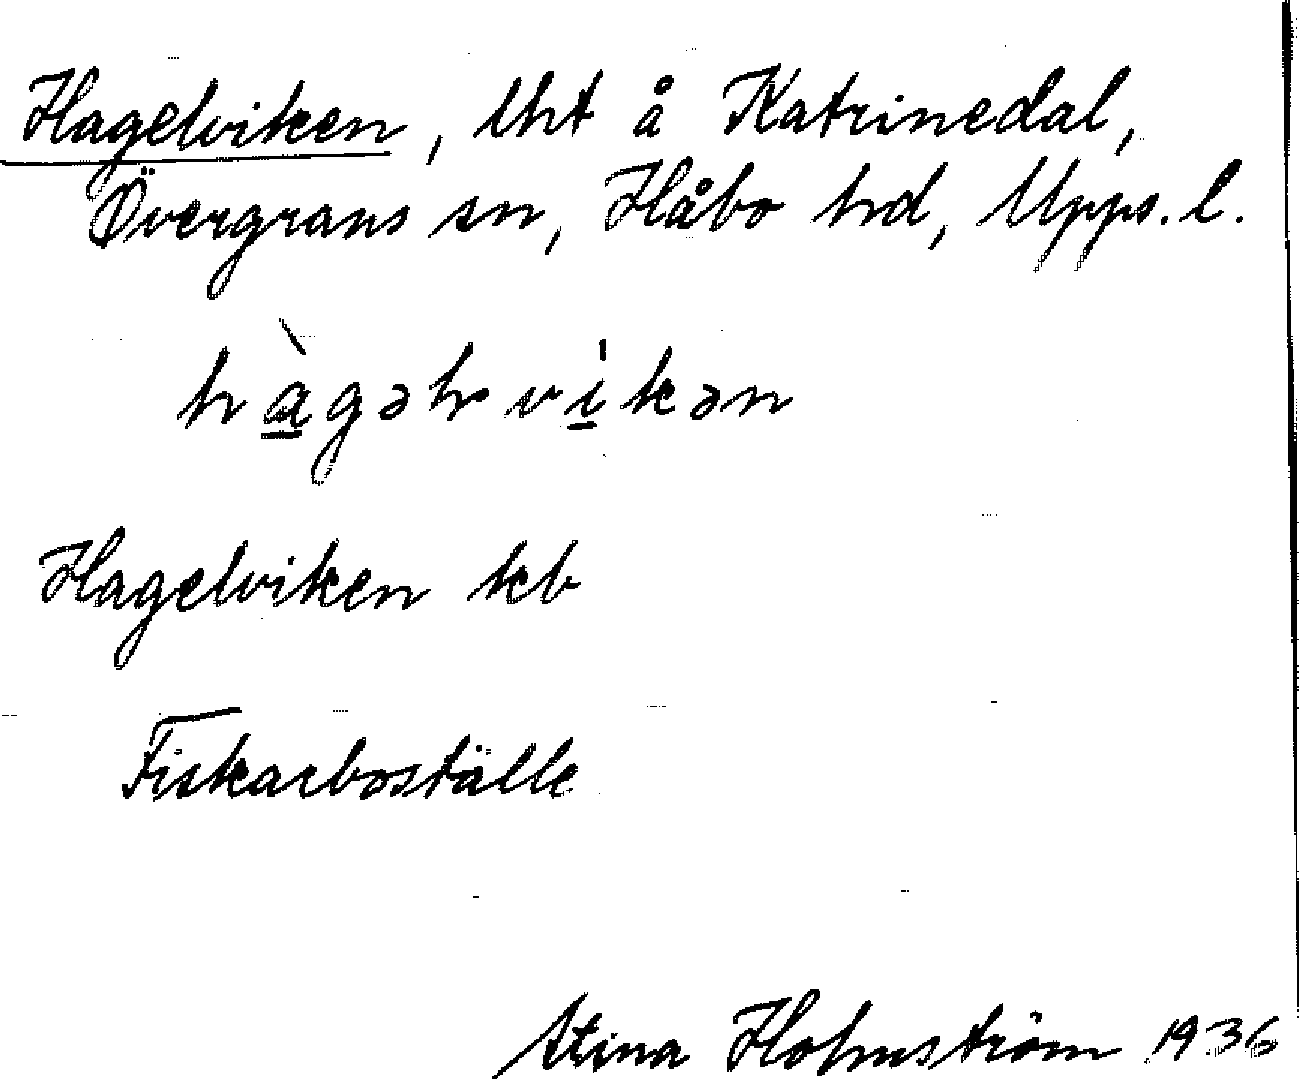 Hagelviken, lht å Katrinedal,
Övergrans sn, Håbo hd, Upps. l.
hàgəlvikən
Hagelviken kb
Fiskarboställe
Stina Holmström 1936